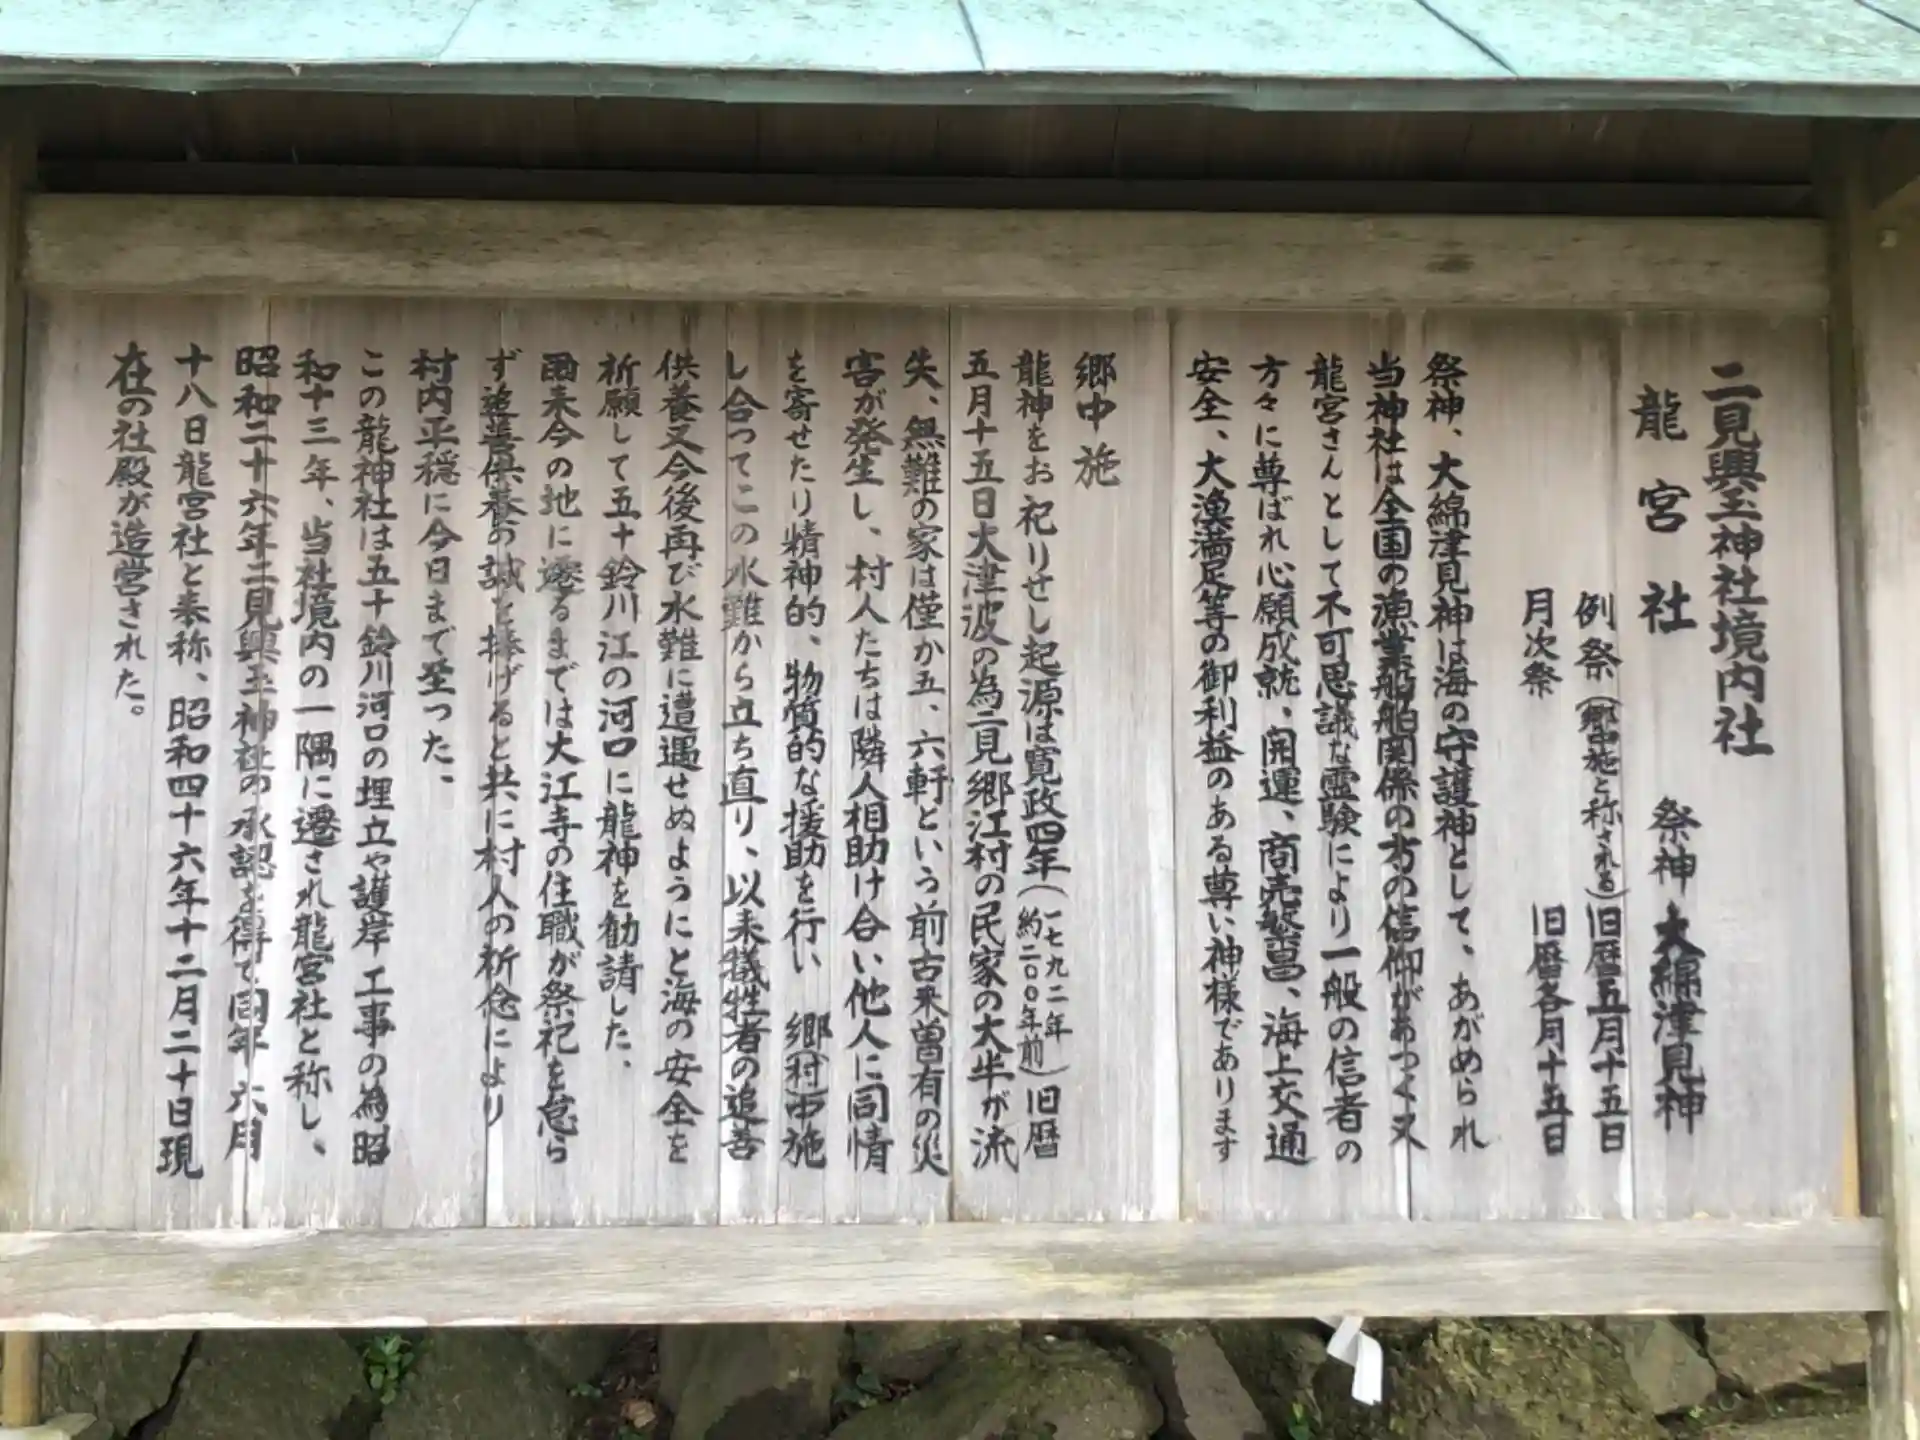 二見興玉神社境内社
龍宮社　祭神　大綿津見神
例祭（郷中施と称される）旧暦五月十五日
月次祭　旧暦各月十五日
祭神、大綿津見神は海の守護神として、あがめられ
当神社は全国の漁業船舶関係の方の信仰があつく又
龍宮さんとして不可思議な霊験により一般の信者の
方々に尊ばれ心願成就、開運、商売繁昌、海上交通
安全、大漁満足等の御利益のある尊い神様であります
郷中施
龍神をお祀りせし起源は寛政四年（一七九二年　約二〇〇年前）旧暦
五月十五日大津波の為二見郷江村の民家の大半が流
失、無難の家は僅か五、六軒という前古来曽有の災
害が発生し、村人たちは隣人相助け合い他人に同情
を寄せたり精神的、物質的な援助を行い　郷（村）中施
し合ってこの水難から立ち直り、以来犠牲者の追善
供養又今後再び水難に遭遇せぬようにと海の安全を
祈願して五十鈴川江の河口に龍神を勧請した、
爾来今の地に遷るまでは大江寺の住職が祭祀を怠ら
ず追善供養の誠を捧げると共に村人の祈念により
村内平穏に今日まで至った、
この龍神社は五十鈴川河口の埋立や護岸工事の為昭
和十三年、当社境内の一隅に遷され龍宮社と称し、
昭和二十六年二見興玉神社の承認を得て同年六月
十八日龍宮社と奉称、昭和四十六年十二月二十日現
在の社殿が造営された。